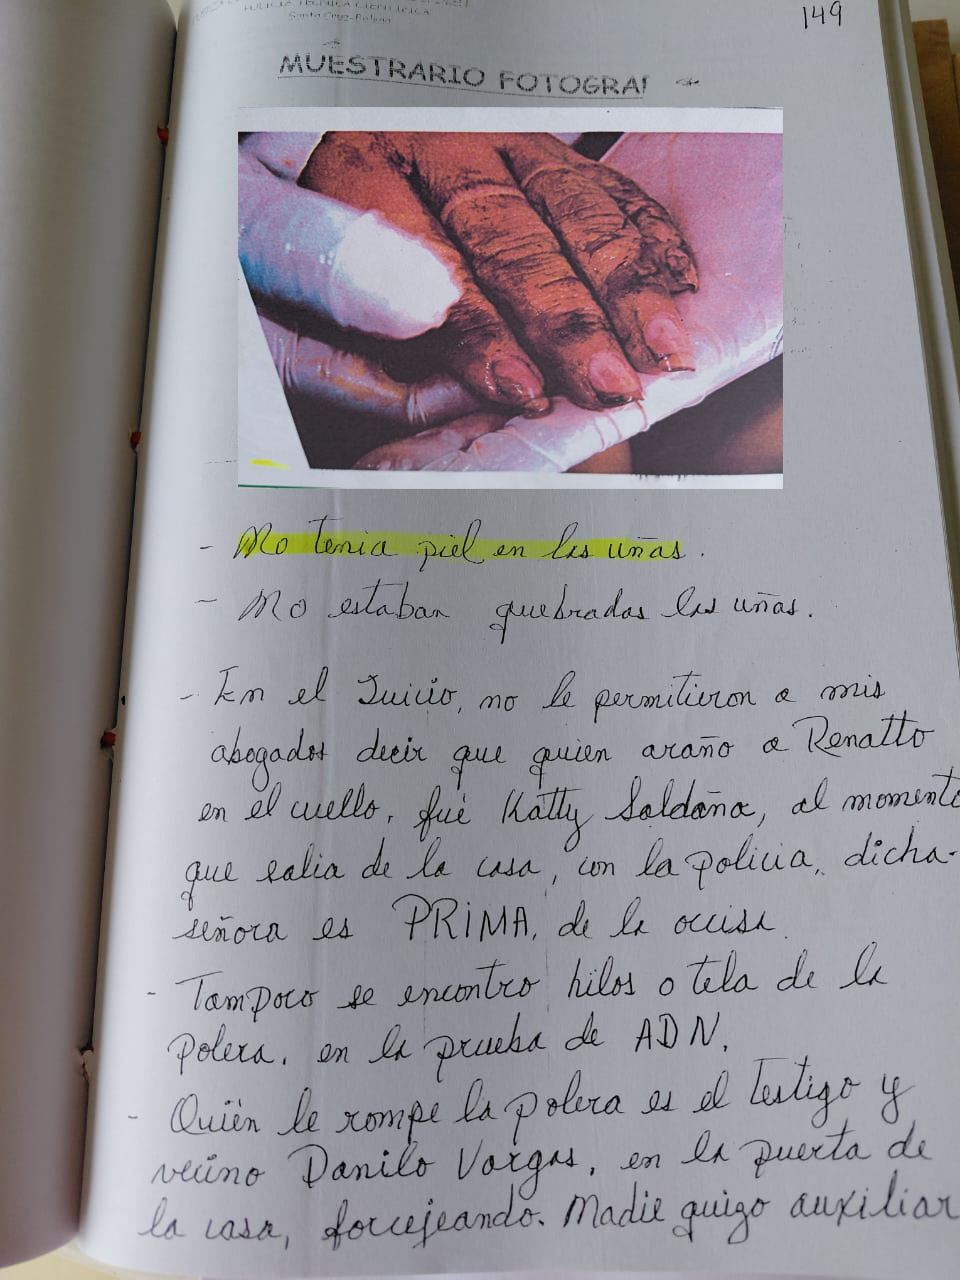 149
POLICIA TECNICA CIENTIFICA
Santa Cruz-Bolivia
MUESTRARIO FOTOGRAF
- No tenia piel en las uñas.
- No estaban quebradas las uñas.
- En el Juicio, no le permitieron a mis
abogados decir que quien araño a Renatto
en el cuello, fué Katty Saldaña, al momento
que salia de la casa, con la policia, dicha-
señora es PRIMA, de la occisa
- Tampoco se encontro hilos o tela de la
polera, en la prueba de ADN.
- Quién le rompe la polera es el Testigo y
vecino Danilo Vargas, en la puerta de
la casa, forcejeando. Nadie quizo auxiliar